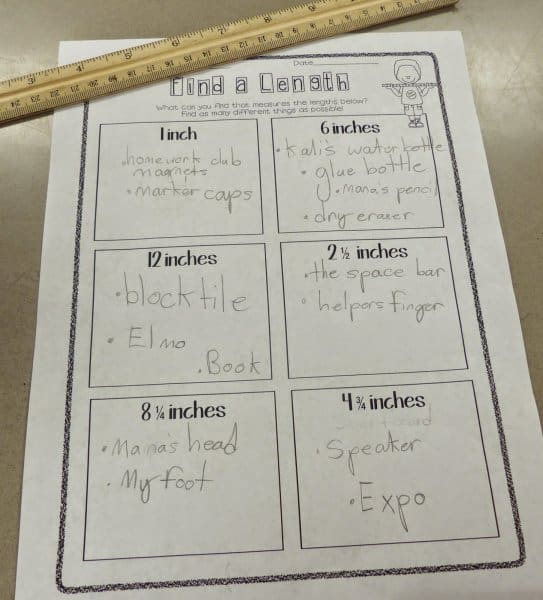 Date
Find a Length
What can you find that measures the lengths below?
Find as many different things as possible!
1 inch
• homework club
magnets
• marker caps
6 inches
• Kali's water bottle
• glue bottle
• Mana's pencil
• dry eraser
12 inches
• block tile
• Elmo
• Book
2 ½ inches
• the space bar
• helpers finger
8 ¼ inches
• Maina's head
• My foot
4 ¾ inches
• Speaker
• Expo